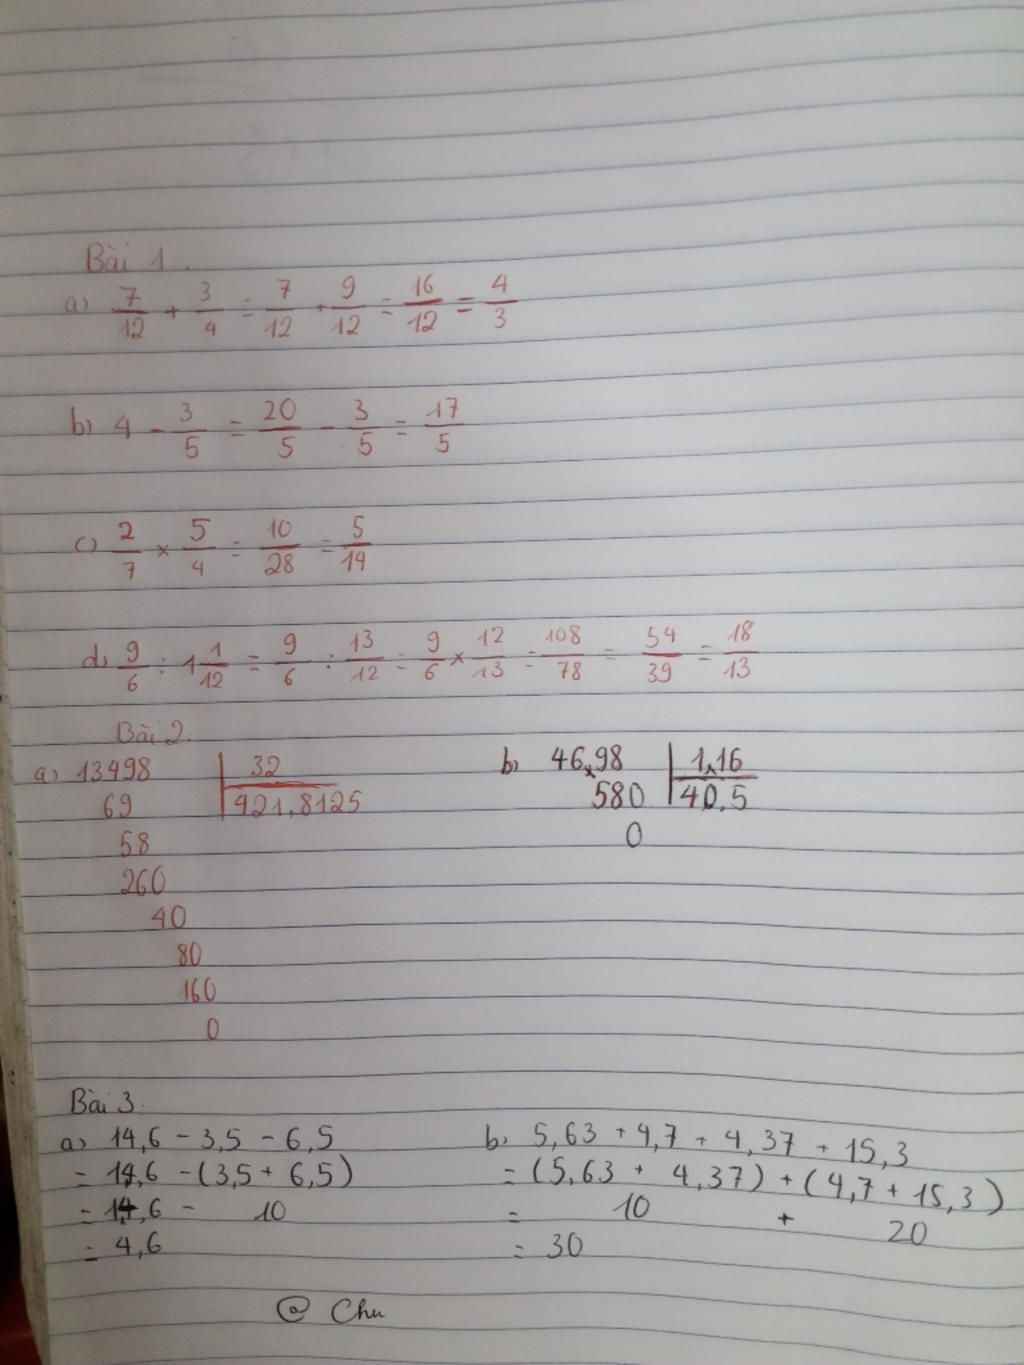 Bài 1.
a) 7/12 + 3/4 = 7/12 + 9/12 = 16/12 = 4/3
b) 4 - 3/5 = 20/5 - 3/5 = 17/5
c) 2/7 × 5/4 = 10/28 = 5/14
d) 9/6 : 1 1/12 = 9/6 : 13/12 = 9/6 × 12/13 = 108/78 = 54/39 = 18/13
Bài 2.
a) 13498 | 32
69 | 421,8125
58
260
40
80
160
0
b) 46,98 | 1,16
580 | 40,5
0
Bài 3.
a) 14,6 - 3,5 - 6,5
= 14,6 - (3,5 + 6,5)
= 14,6 - 10
= 4,6
b) 5,63 + 4,7 + 4,37 + 15,3
= (5,63 + 4,37) + (4,7 + 15,3)
= 10 + 20
= 30
@ Chu